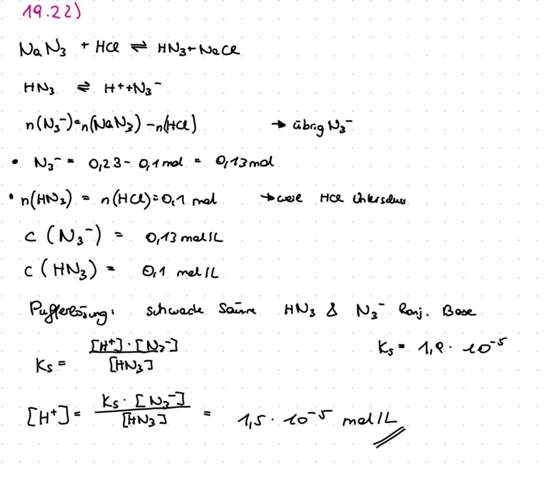 19.22)
NaN₃ + HCl ⇌ HN₃ + NaCl
HN₃ ⇌ H⁺ + N₃⁻
n(N₃⁻) = n(NaN₃) - n(HCl) → übrig N₃⁻
• N₃⁻ = 0,23 - 0,1 mol = 0,13 mol
• n(HN₃) = n(HCl) = 0,1 mol → weil HCl
c (N₃⁻) = 0,13 mol/L
c (HN₃) = 0,1 mol/L
Pufferlösung: schwache Säure HN₃ & N₃⁻ konj. Base
Ks = [H⁺]·[N₃⁻] / [HN₃] Ks = 1,9 · 10⁻⁵
[H⁺] = Ks · [N₃⁻] / [HN₃] = 1,5 · 10⁻⁵ mol/L